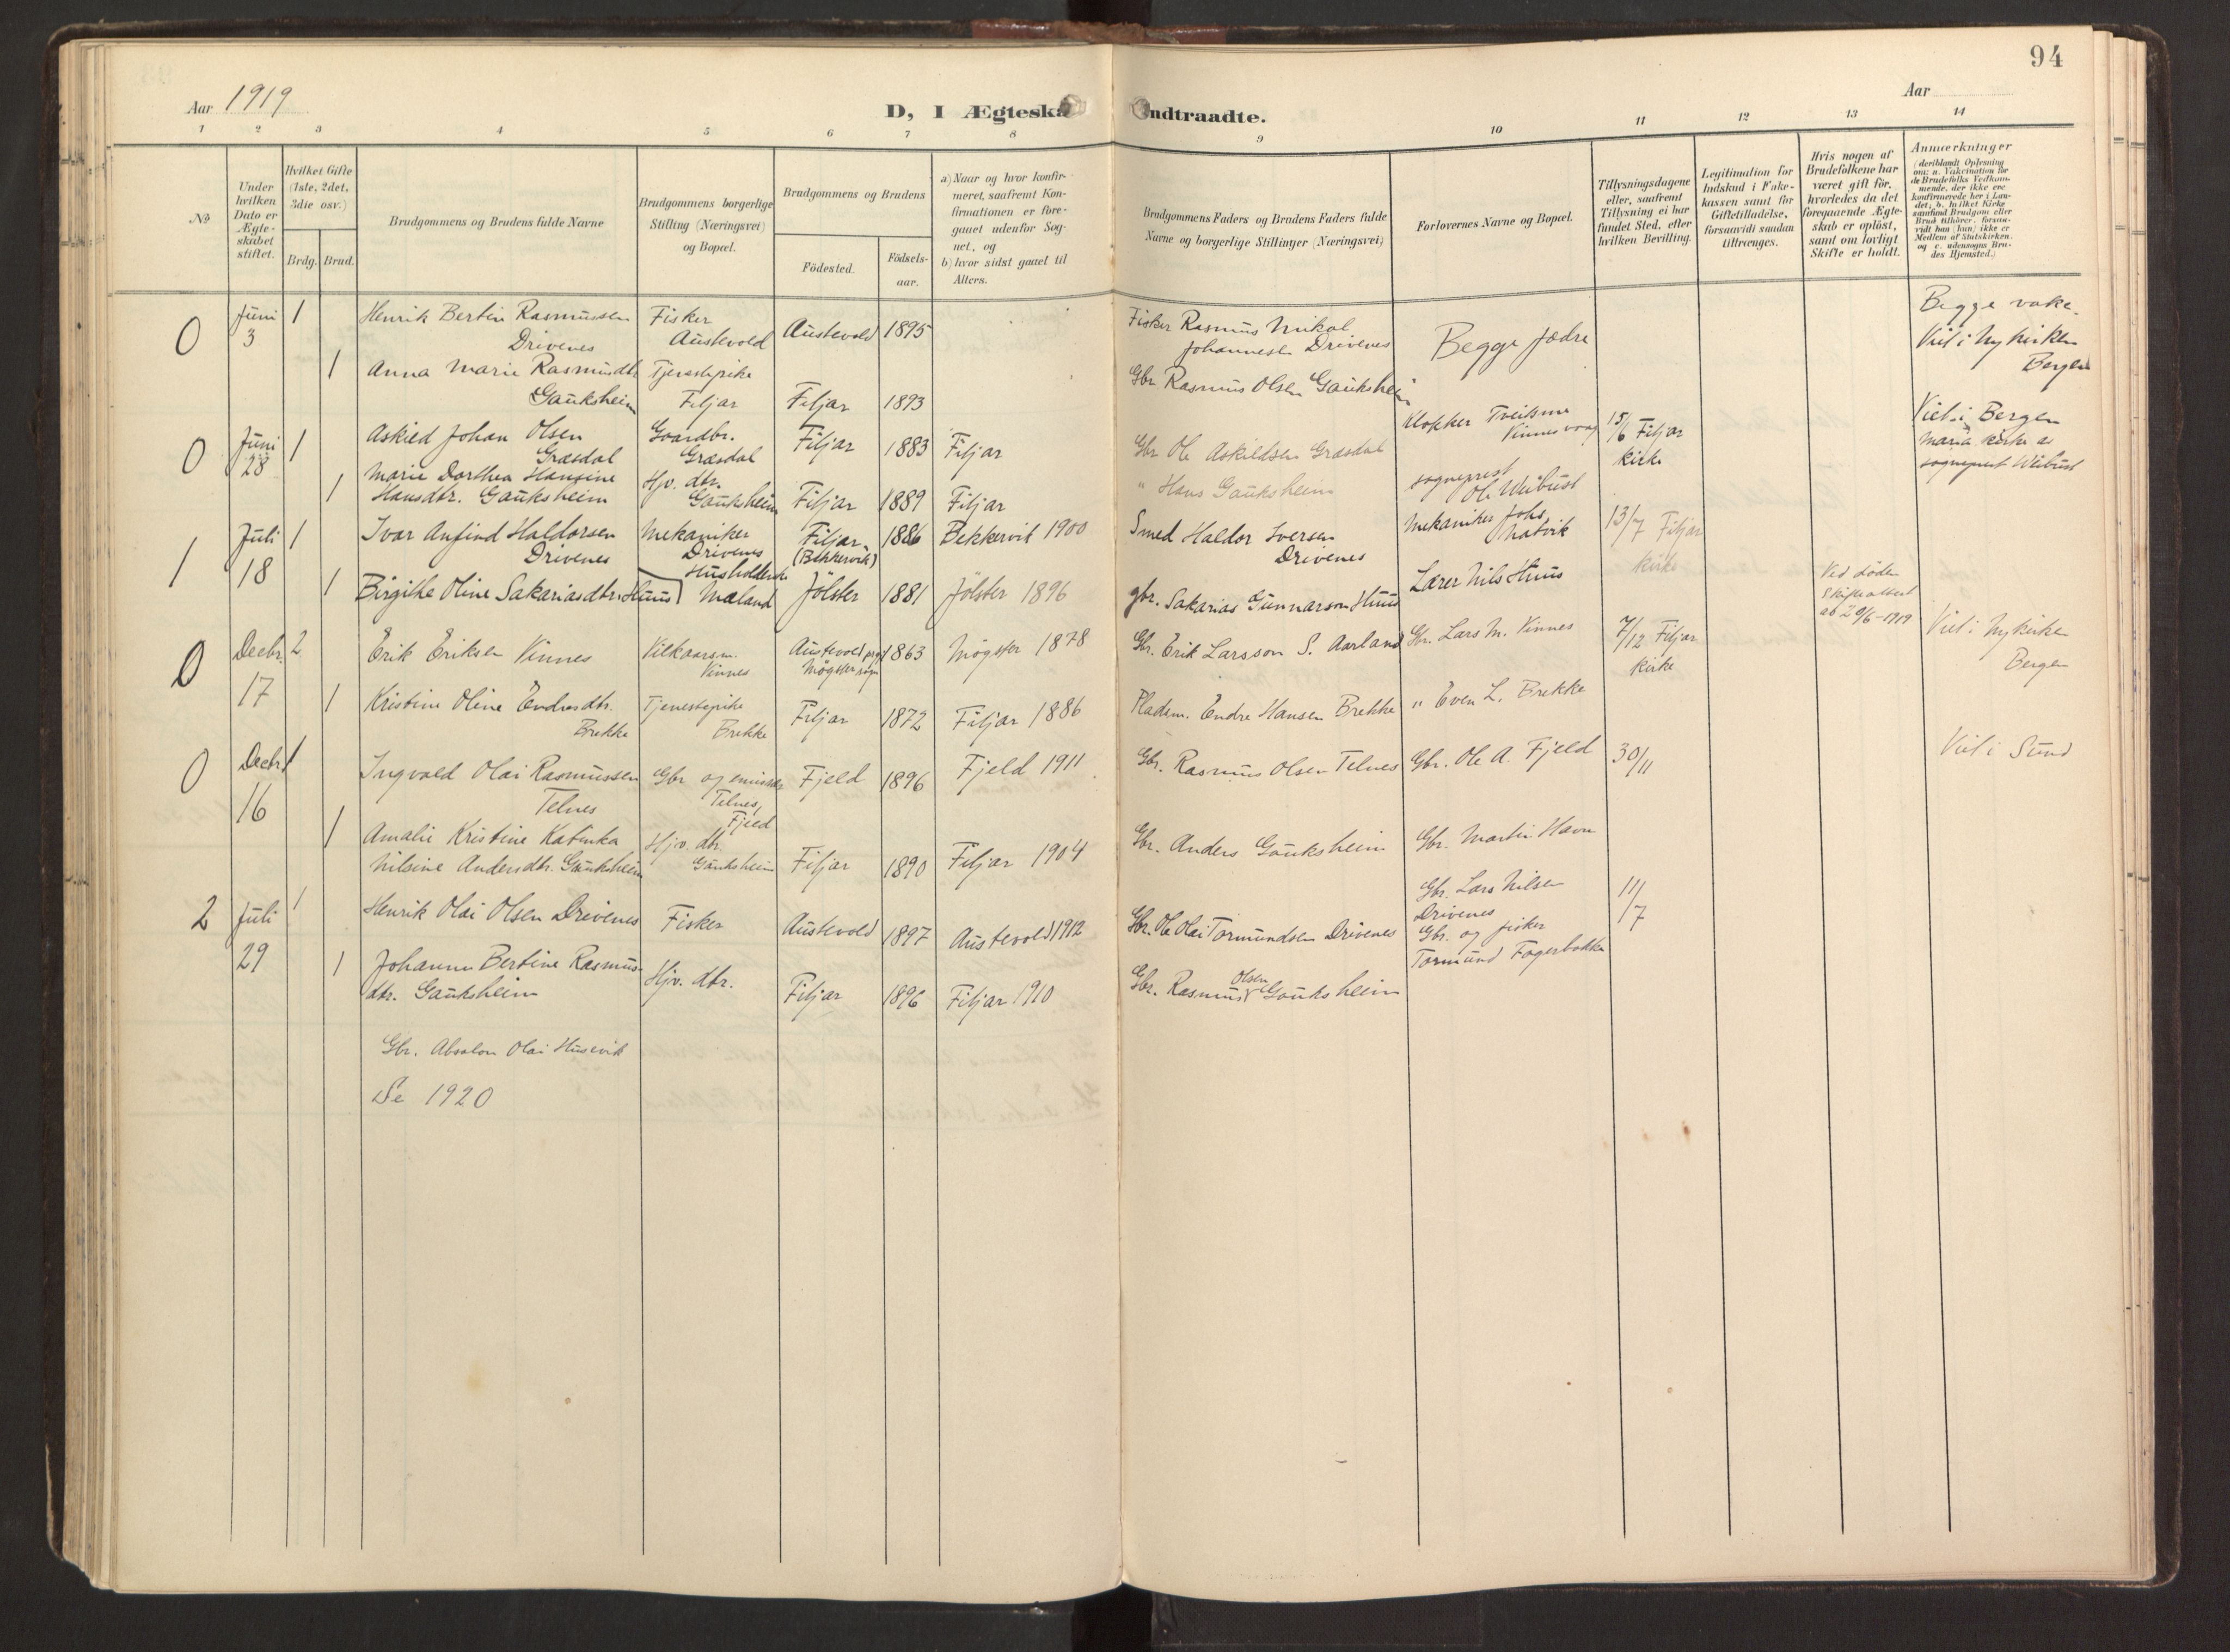 94
Aar 1919
D, I Ægteska
ndtraadte.
Aar
1 2 3 4 5 6 7 8 9 10 11 12 13 14
No
Under hvilken Dato er Ægteskabet stiftet.
Hvilket Gifte (1ste, 2det, 3die osv.)
Brdg. Brud.
Brudgommens og Brudens fulde Navne
Brudgommens borgerlige Stilling (Næringsvei) og Bopæl.
Brudgommens og Brudens
Födested.
Födselsaar.
a) Naar og hvor konfirmeret, saafremt Konfirmationen er foregaaet udenfor Sognet, og
b) hvor sidst gaaet til Alters.
Brudgommens Faders og Brudens Faders fulde Navne og borgerlige Stillinger (Næringsvei)
Forlovernes Navne og Bopæl.
Tillysningsdagene eller, saafremt Tillysning ei har fundet Sted, efter hvilken Bevilling.
Legitimation for Indskud i Enkekassen samt for Giftetilladelse, forsaavidt saadan tiltrænges.
Hvis nogen af Brudefolkene har været gift för, hvorledes da det foregaaende Ægteskab er oplöst, samt om lovligt Skifte er holdt.
Anmærkninger (deriblandt Oplysning om: a. Vakcination for de Brudefolks Vedkommende, der ikke ere konfirmerede her i Landet; b. hvilket Kirkesamfund Brudgom eller Brud tilhörer, forsaavidt han (hun) ikke er Medlem af Statskirken, og c. udensogns Brudes Hjemsted.)
0 Juni 3 1 Henrik Bertin Rasmussen Drivenes Fisker Austevold Austevold 1895
Fisker Rasmus Nikol. Johannesen Drivenes
Begge fædre
Begge vake.
Viet i Nykirken Bergen
1 Anna Marie Rasmusdtr. Gauksheim Tjenestepike Fitjar Fitjar 1893
Gbr Rasmus Olsen Gauksheim
0 Juni 28 1 Askild Johan Olsen Græsdal Gaardbr. Græsdal Fitjar 1883 Fitjar
Gbr Ole Askildsen Græsdal
Klokker Tveitsme Vinnesvaag
15/6 Fitjar kirke
Viet i Bergen Maria kirke av sogneprest Weibust
1 Marie Dorthea Hansine Hansdtr. Gauksheim Hjv. dtr. Gauksheim Fitjar 1889 Fitjar
" Hans Gauksheim
sogneprest Ole Weibust
1 Juli 18 1 Ivar Anfind Haldorsen Drivenes Mekaniker Drivenes Fitjar (Bekkervik) 1886 Bekkervik 1900
Smed Haldor Iversen Drivenes
Mekaniker Johs. Natvik
13/7 Fitjar kirke
1 Birgithe Oline Sakariasdtr. Huus Husholderske Mæland Jölster 1881 Jölster 1896
gbr. Sakarias Gunnarson Huus
Lærer Nils Huus
0 Decbr. 17 2 Erik Eriksen Vinnes Vilkaarsm. Vinnes Austevold prgj Møgster sogn 1863 Møgster 1878
Gbr. Erik Larsson S. Aarland
Gbr. Lars M. Vinnes
7/12 Fitjar kirke
Ved döden
Skifteattest
av 20/6-1919
Viet i Nykirken Bergen
1 Kristine Oline Endresdtr. Brekke Tjenestepike Brekke Fitjar 1872 Fitjar 1886
Pladsm. Endre Hansen Brekke
" Even L. Brekke
0 Decbr 16 1 Ingvald Olai Rasmussen Telnes Gbr og emissær Telnes, Fjeld Fjeld 1896 Fjeld 1911
Gbr. Rasmus Olsen Telnes
Gbr. Ole A. Fjeld
30/11
Viet i Sund
1 Amalie Kristine Katinka Nilsine Andersdtr. Gauksheim Hjv. dtr. Gauksheim Fitjar 1890 Fitjar 1904
Gbr. Anders Gauksheim
Gbr. Martin Havn
2 Juli 29 1 Henrik Olai Olsen Drivenes Fisker Austevold 1897 Austevold 1912
Gbr. Ole Olai Tormundsen Drivenes
Gbr. Lars Nilsen Drivenes
11/7
1 Johanne Bertine Rasmusdtr. Gauksheim Hjv. dtr. Fitjar 1896 Fitjar 1910
Gbr. Rasmus Olsen Gauksheim
Gbr. og fisker Tormund Fagerbakke
Gbr. Absalon Olai Husevik
Se 1920